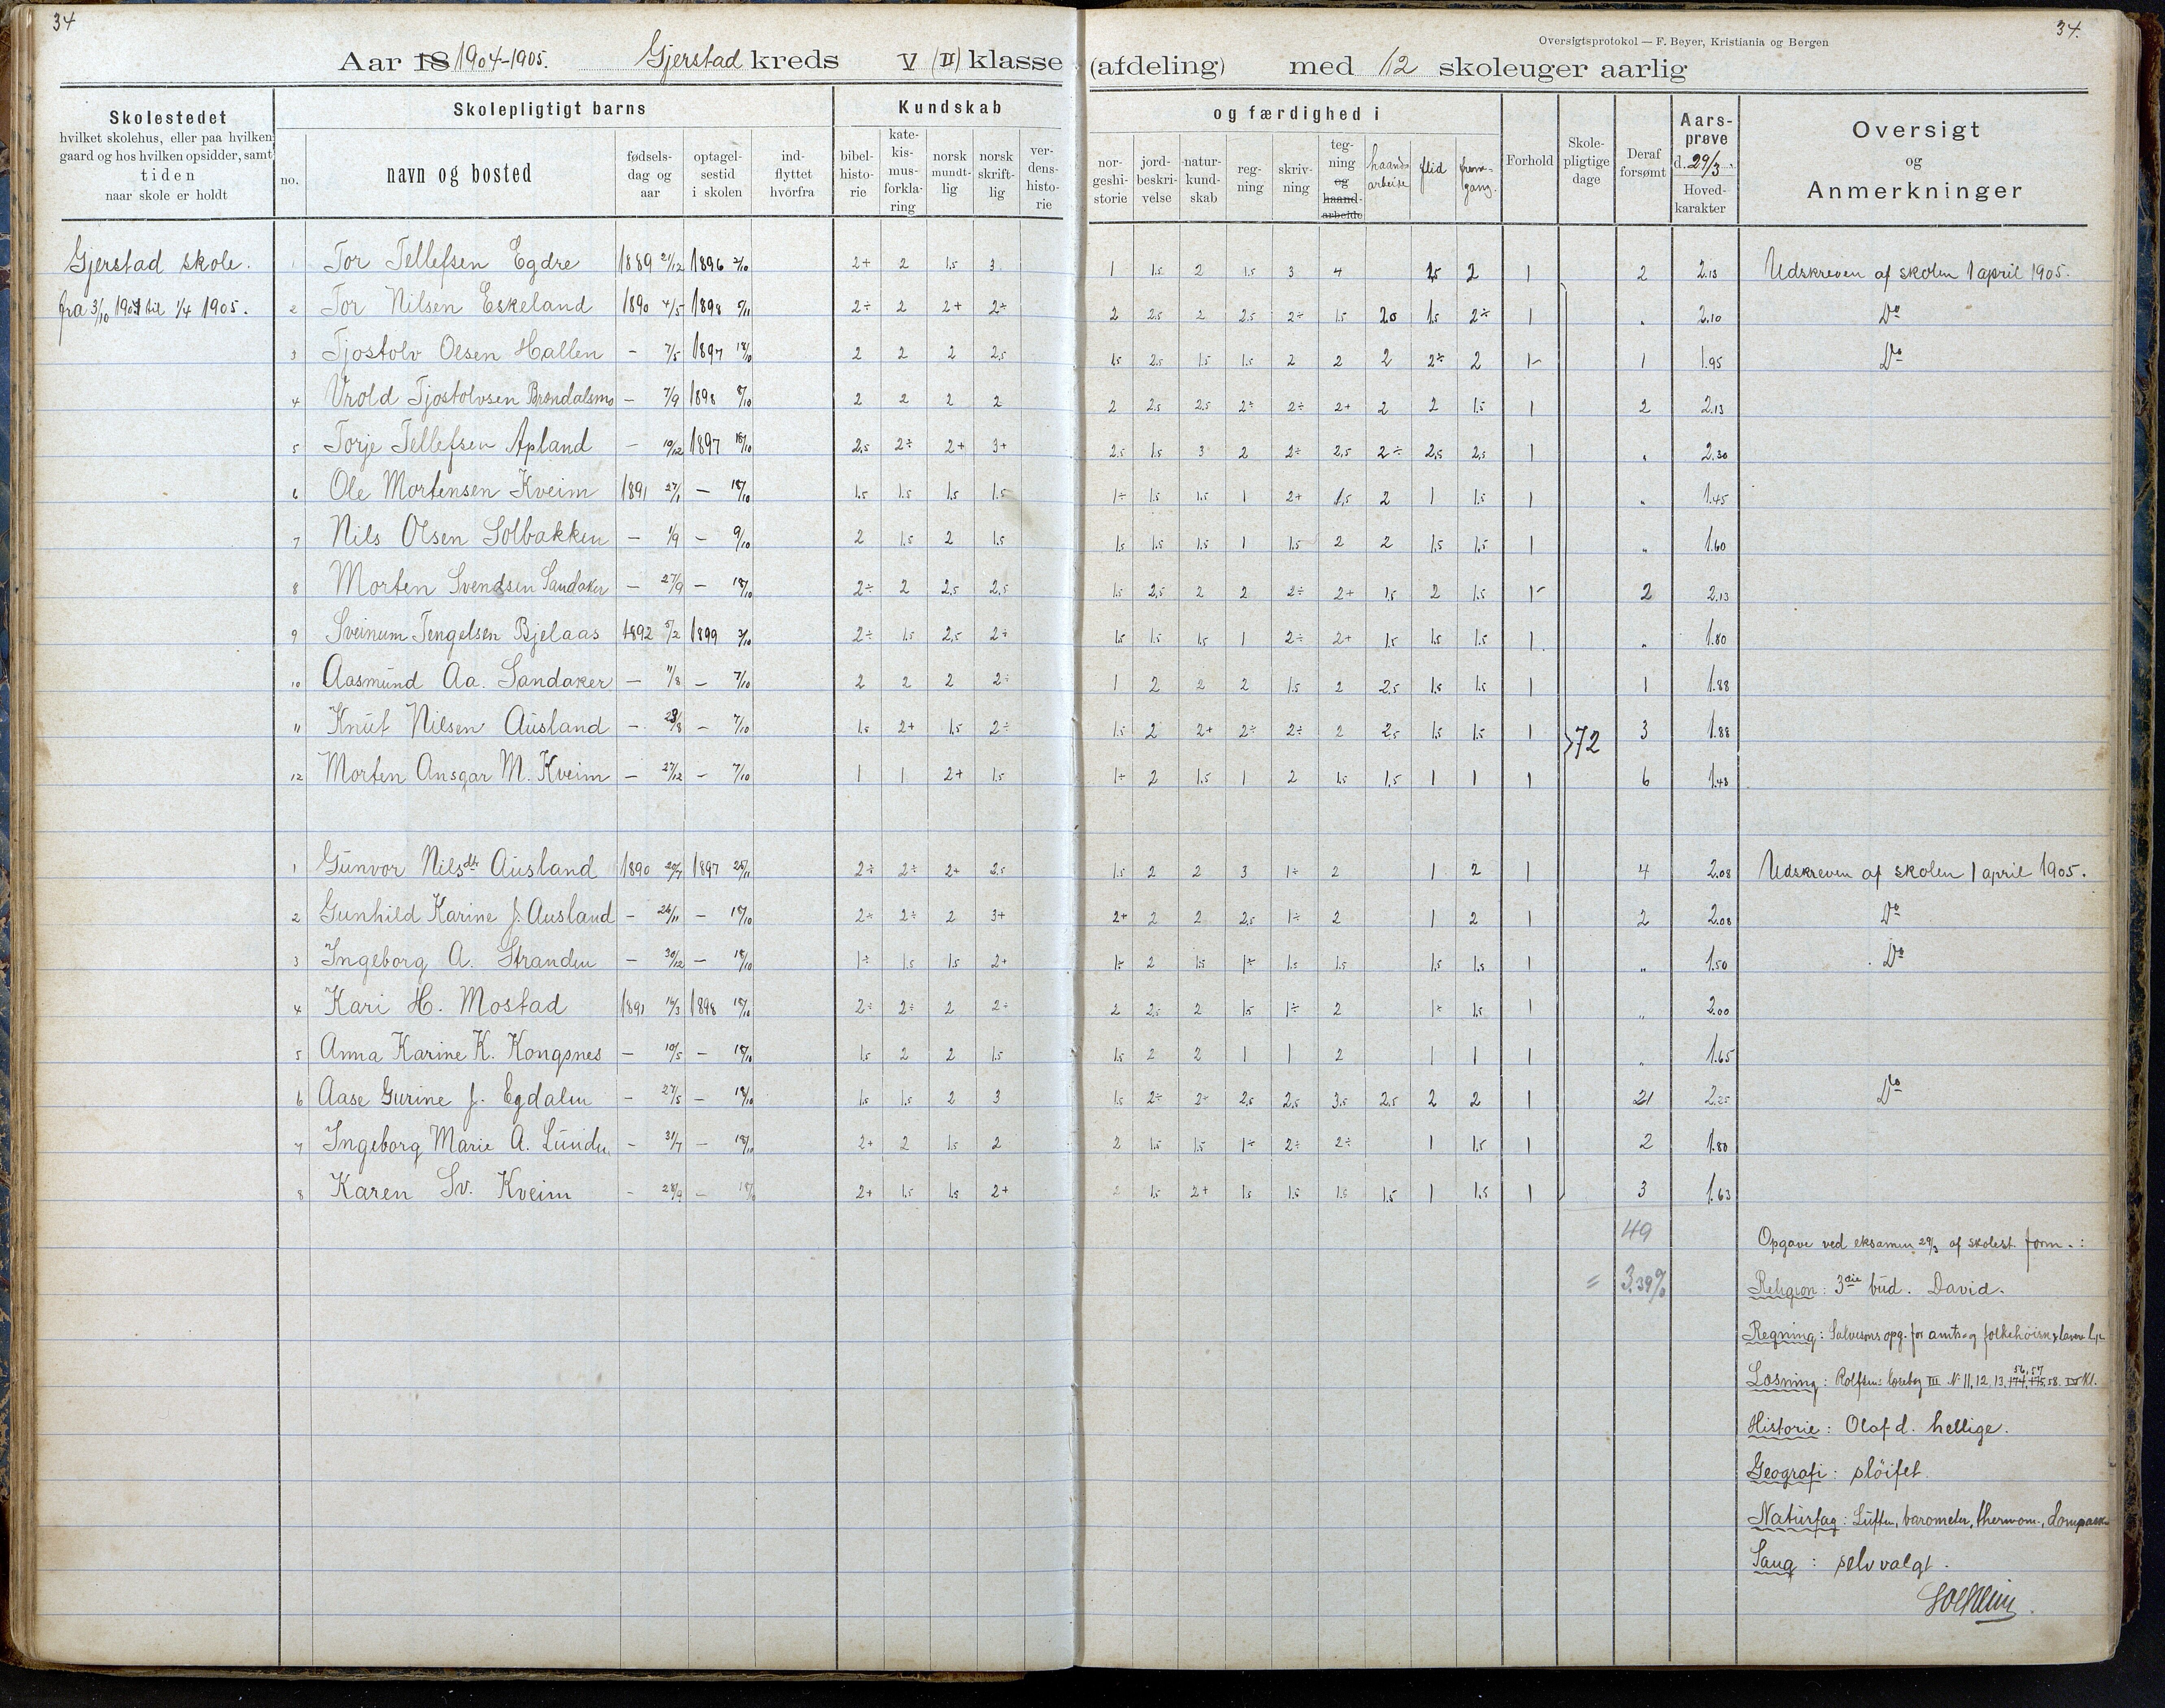 34
34.
Oversigtsprotokol — F. Beyer, Kristiania og Bergen
Aar 18 1904-1905. Gjerstad kreds V (II) klasse (afdeling) med 12 skoleuger aarlig
Skolestedet
hvilket skolehus, eller paa hvilken
gaard og hos hvilken opsidder, samt
tiden
naar skole er holdt
Skolepligtigt barns
no.
navn og bosted
fødsels-
dag og
aar
optagel-
sestid
i skolen
ind-
flyttet
hvorfra
Kundskab
bibel-
histo-
rie
kate-
kis-
mus-
forkla-
ring
norsk
mundt-
lig
norsk
skrift-
lig
ver-
dens-
histo-
rie
og færdighed i
nor-
geshi-
storie
jord-
beskri-
velse
natur-
kund-
skab
reg-
ning
skriv-
ning
teg-
ning
og
haand-
arbeide
haand-
arbeide
flid
frem-
gang.
Forhold
Skole-
pligtige
dage
Deraf
forsømt
Aars-
prøve
d. 29/3
Hoved-
karakter
Oversigt
og
Anmerkninger
Gjerstad skole.
fra 3/10 1904 til 1/4 1905.
1 Tor Tellefsen Egdre 1889 21/12 1896 2/10 2+ 2 1.5 3 1 1.5 2 1.5 3 4 1.5 2 1 2 2.13 Udskreven af skolen 1 april 1905.
2 Tor Nilsen Eskeland 1890 4/5 1898 5/11 2÷ 2 2+ 2÷ 2 2.5 2 2.5 2÷ 1.5 20 1.5 2÷ 1 " 2.10 Do
3 Tjostolv Olsen Hallen – 7/5 1897 18/10 2 2 2 2.5 1.5 2.5 1.5 1.5 2 2 2 2÷ 2 1- 1 1.95 Do
4 Vrold Tjostolvsen Brøndalsmo – 7/9 1898 8/10 2 2 2 2 2 2.5 2.5 2÷ 2÷ 2+ 2 2 1.5 1 2 2.13
5 Torje Tellefsen Apland – 10/12 1897 18/10 2.5 2÷ 2+ 3+ 2.5 1.5 3 2 2÷ 2.5 2÷ 2.5 2.5 1 " 2.30
6 Ole Mortensen Kveim 1891 27/1 – 18/10 1.5 1.5 1.5 1.5 1÷ 1.5 1.5 1 2+ 1.5 2 1 1.5 1 " 1.45
7 Nils Olsen Solbakken – 1/9 – 9/10 2 1.5 2 1.5 1.5 1.5 1.5 1 1.5 2 2 1.5 1.5 1 " 1.60
8 Morten Svendsen Sandaker – 27/9 – 18/10 2÷ 2 2.5 2.5 1.5 2.5 2 2 2÷ 2+ 1.5 2 1.5 1- 2 2.13
9 Sveinum Tengelsen Bjelaas 1892 5/2 1899 3/10 2÷ 1.5 2.5 2÷ 1.5 1.5 1.5 1 2÷ 2+ 1.5 1.5 1.5 1 " 1.80
10 Aasmund Aa. Sandaker – 11/8 – 7/10 2 2 2 2÷ 1 2 2 2 1.5 2 2.5 1.5 1.5 1 1 1.88
11 Knut Nilsen Ausland – 23/8 – 7/10 1.5 2+ 1.5 2÷ 1.5 2 2+ 2÷ 2÷ 2 2.5 1.5 1.5 1 72 3 1.88
12 Morten Ansgar M. Kveim – 27/12 – 7/10 1 1 2+ 1.5 1÷ 2 1.5 1 2 1.5 1.5 1 1 1 6 1.48
1 Gunvor Nilsdtr Ausland 1890 20/7 1897 25/11 2÷ 2÷ 2+ 2.5 1.5 2 2 3 1÷ 2 1 2 1 4 2.08 Udskreven af skolen 1 april 1905.
2 Gunhild Karine J. Ausland – 26/11 – 18/10 2÷ 2÷ 2 3+ 2+ 2 2 2.5 1÷ 2 1 2 1 2 2.08 Do
3 Ingeborg A. Stranden – 30/12 – 18/10 1÷ 1.5 1.5 2+ 1÷ 2 1.5 1÷ 1.5 1.5 1.5 1.5 1 " 1.50 Do
4 Kari H. Mostad 1891 16/3 1898 18/10 2÷ 2÷ 2 2÷ 2 2.5 2 1.5 1÷ 2 1÷ 1.5 1 " 2.00
5 Anna Karine K. Kongsnes – 10/5 – 18/10 1.5 2 2 1.5 1.5 2 2 1 1 2 1 1 1 " 1.65
6 Aase Gurine J. Egdalen – 27/5 – 18/10 1.5 1.5 2 3 1.5 2÷ 2÷ 2.5 2.5 3.5 2.5 2 2 1 21 2.25 Do
7 Ingeborg Marie A. Lunden – 31/7 – 18/10 2+ 2 1.5 2 2 1.5 1.5 1÷ 2÷ 2÷ 1 1.5 1 2 1.80
8 Karen Sv. Kveim – 28/9 – 18/10 2+ 1.5 1.5 2+ 2 1.5 2+ 1.5 1.5 1.5 1.5 1 1.5 1 3 1.63
49
= 3.39%
Opgave ved eksamen 29/3 af skolest. form.:
Religion: 3die bud. David.
Regning: Salvesens opg. for amts- og folkehøisk.
Læsning: Rolfsens læsebog III N. 11, 12, 13, 174, 175, 56, 57, 58. IV Kl.
Historie: Olaf d. hellige.
Geografi: sløifet.
Naturfag: Luften, barometer, thermom.,
Sang: selvvalgt.